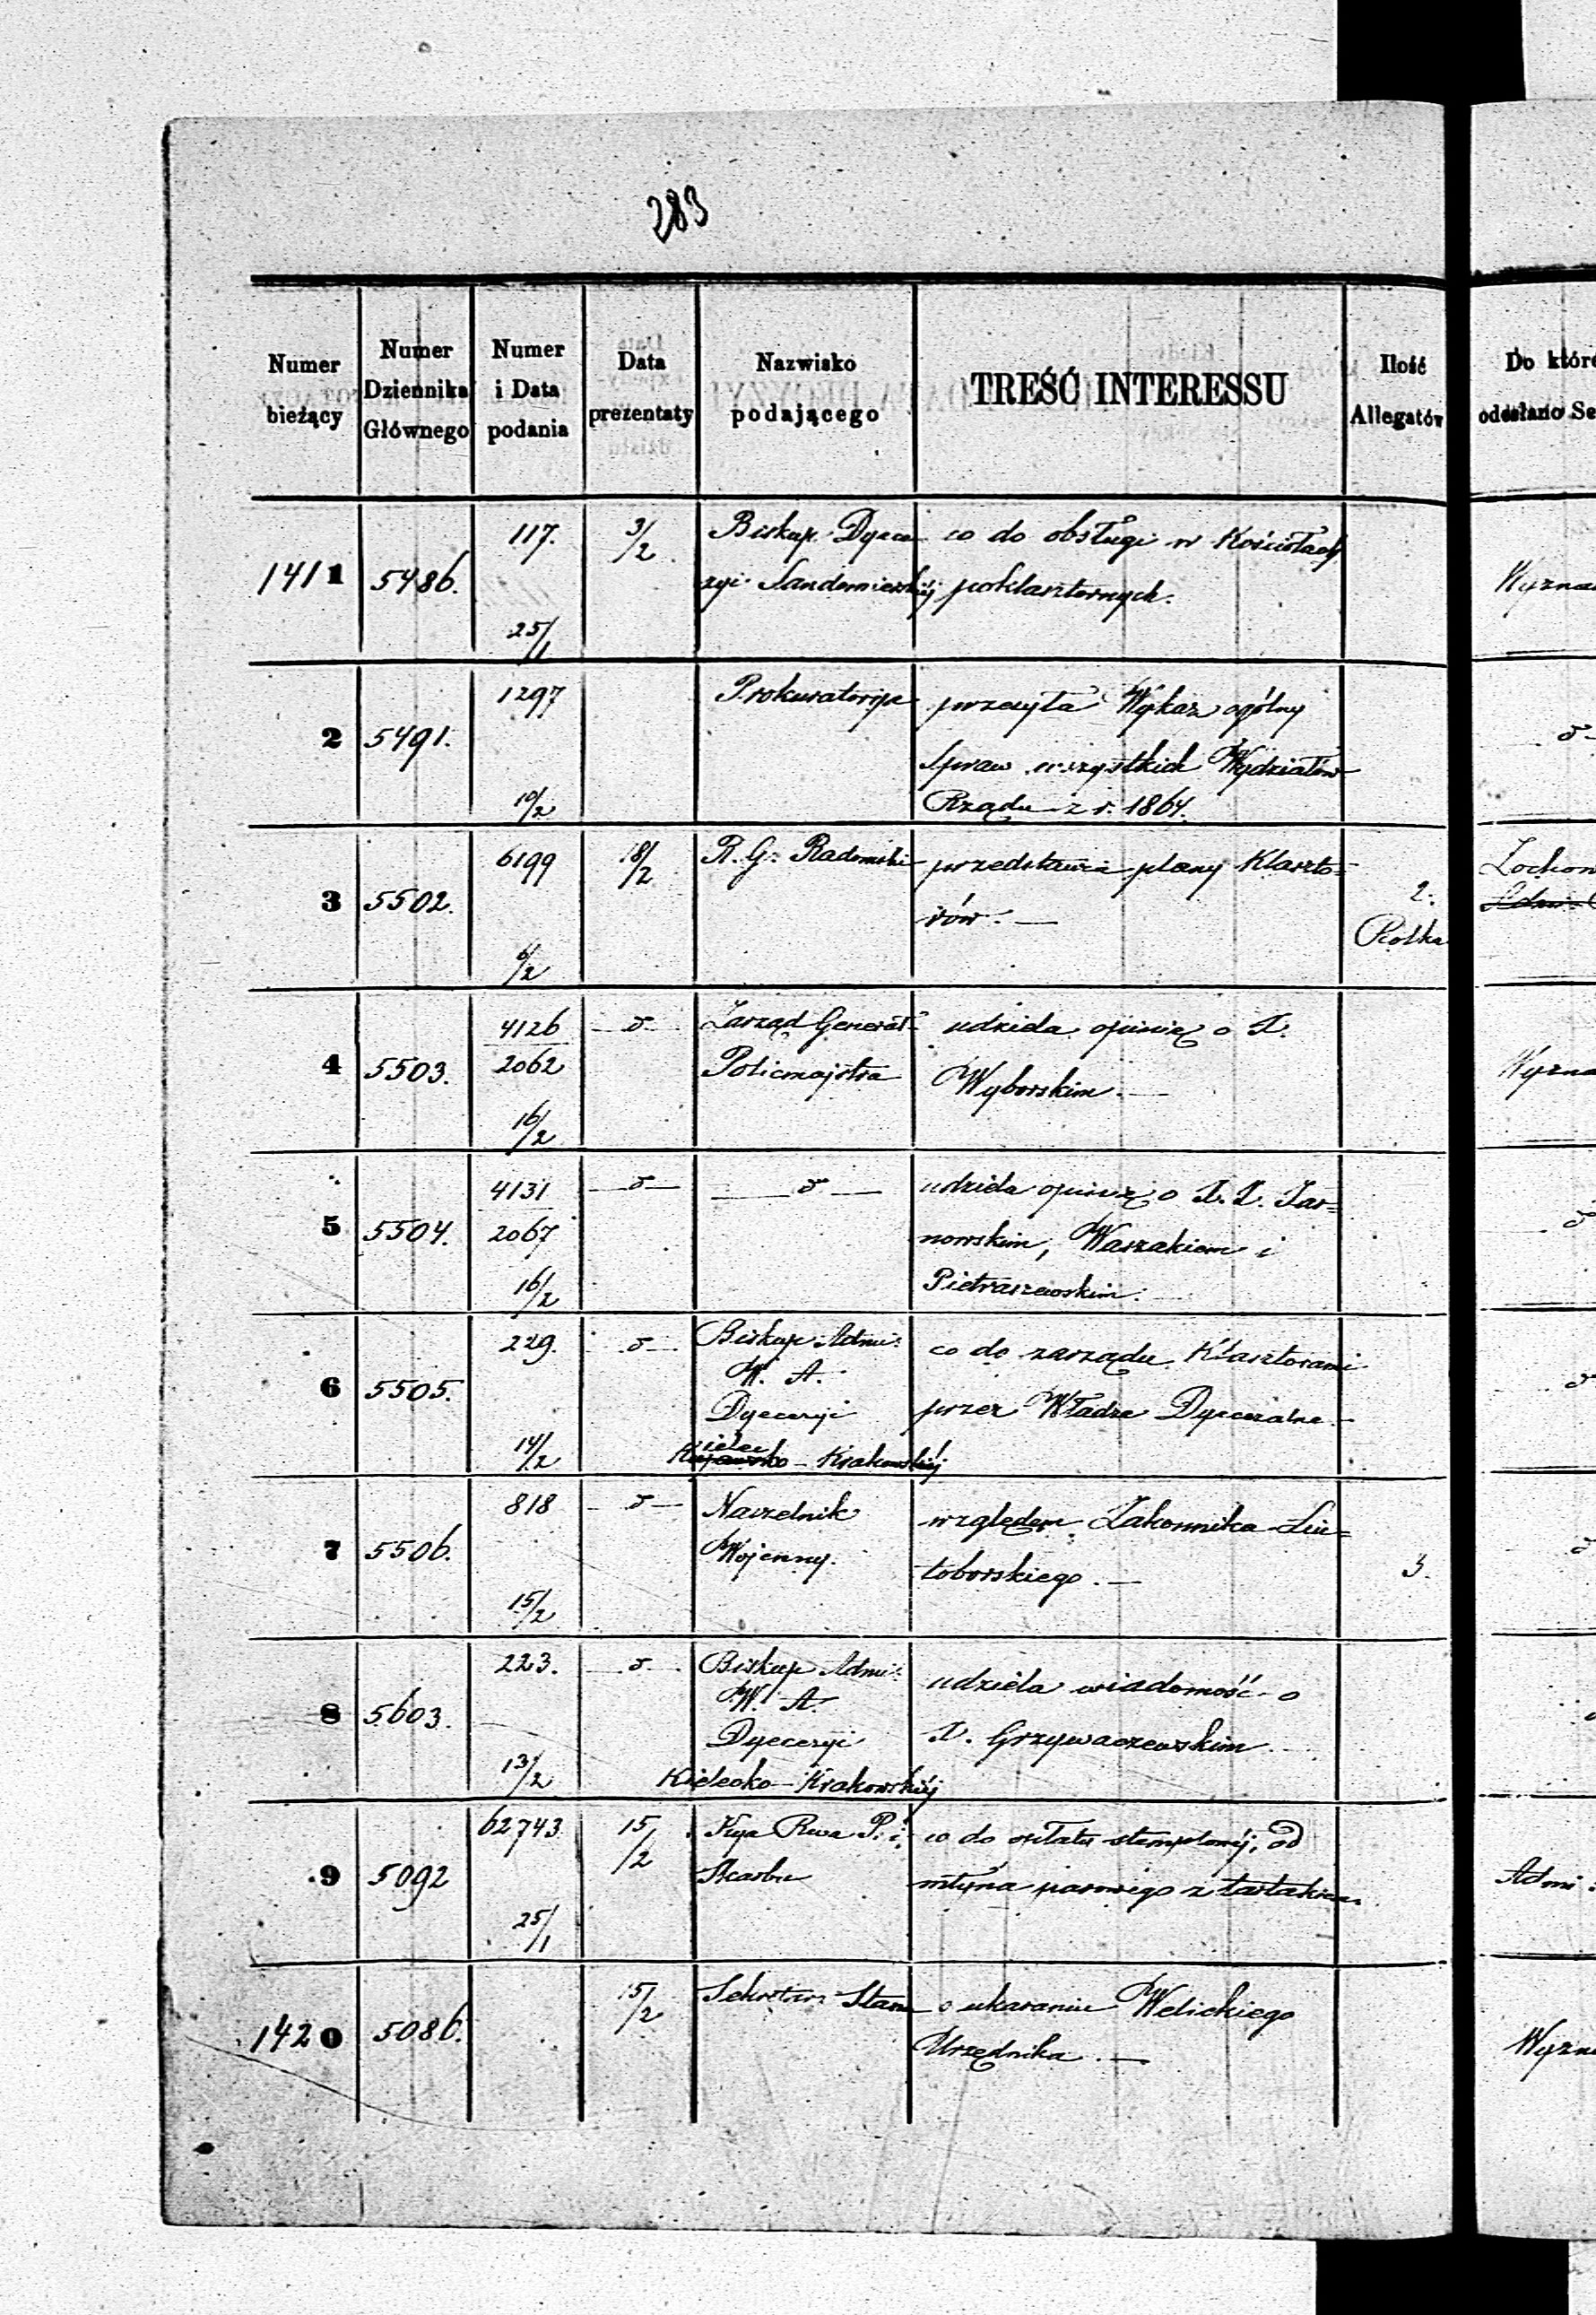 283
Numer bieżący
Numer Dziennika Głównego
Numer i Data podania
Data prezentaty
Nazwisko podającego
TREŚĆ INTERESSU
Ilość Allegatów
Do które
odesłano Se
1411 5486. 117. 25/1 3/2
Biskup Dyece
zyi Sandomierskiéj
co do obsługi w Kościołach
poklasztornych.
Wyzna
2 5491. 1297 10/2
Prokuratorja
przesyła Wykaz ogólny
spraw wszystkich Wydziałów
Rządu z r. 1864.
3 5502. 6199 6/2 18/2
R. G. Radomski
przedstawia plany Klaszto=
rów. —
2.
Rolka
4 5503. 4126
2062
16/2 — d —
Zarząd Generał
Policmajstra
udziela opinię o X.
Wyborskim. —
Wyzna
5 5504. 4131
2067
16/2 — d — — d —
udziela opinię o X. X. Tar=
nowskim, Waszakiem i
Pietraszewskim.
6 5505. 229. 14/2 — d —
Biskup Admi:
W. A.
Dyecezyi
Kielec
Kujawsko - Krakowskiéj
co do zarządu Klasztorami
przez Władze Dyecezalne. —
7 5506. 818 15/2 — d —
Naczelnik
Wojenny.
względem Zakonnika Lu=
toborskiego. —
3.
8 5603. 223. 13/2 — d —
Biskup Admi:
W. A.
Dyecezyi
Kielecko - Krakowskiéj
udziela wiadomość o
X. Grzywaczewskim.
9 5092 62743 25/1 15/2
Kya Rwa P. i
Skarbu
co do opłaty stemplowéj, od
młyna parowego z tartakiem
Admi:
1420 5086. 15/2
Sekretarz Stanu
o ukaraniu Welickiego
Urzędnika. —
Wyzna